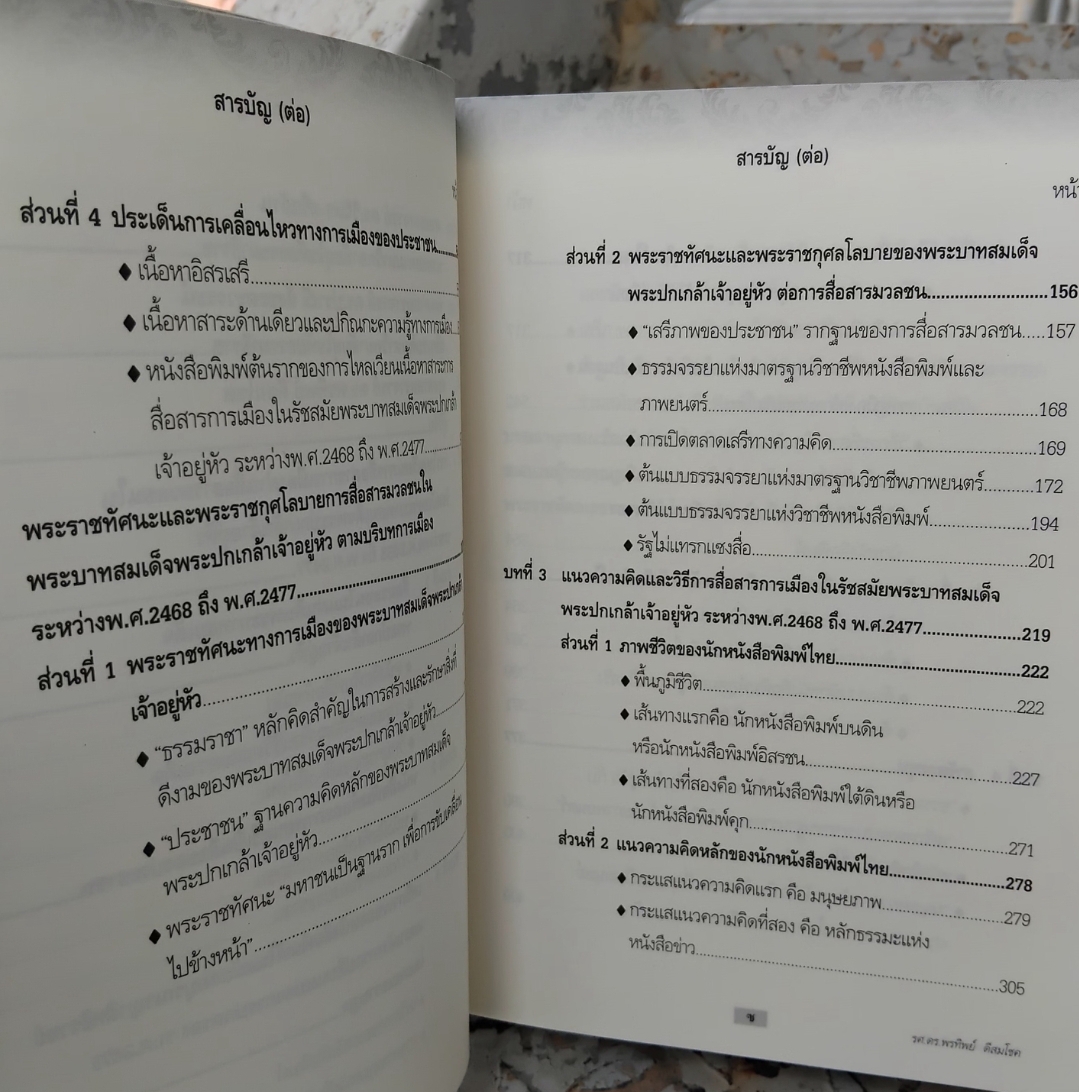 สารบัญ (ต่อ)
ส่วนที่ 4 ประเด็นการเคลื่อนไหวทางการเมืองของประชาชน..........
♦ เนื้อหาอิสรเสรี..........
♦ เนื้อหาสาระด้านเดียวและปกิณกะความรู้ทางการเมือง...
♦ หนังสือพิมพ์ต้นรากของการไหลเวียนเนื้อหาสาระการ
สื่อสารการเมืองในรัชสมัยพระบาทสมเด็จพระปกเกล้า
เจ้าอยู่หัว ระหว่างพ.ศ.2468 ถึง พ.ศ.2477..........
พระราชทัศนะและพระราชกุศโลบายการสื่อสารมวลชนใน
พระบาทสมเด็จพระปกเกล้าเจ้าอยู่หัว ตามบริบทการเมือง
ระหว่างพ.ศ.2468 ถึง พ.ศ.2477..........
ส่วนที่ 1 พระราชทัศนะทางการเมืองของพระบาทสมเด็จพระปกเกล้า
เจ้าอยู่หัว..........
♦ "ธรรมราชา" หลักคิดสำคัญในการสร้างและรักษาสิ่งที่
ดีงามของพระบาทสมเด็จพระปกเกล้าเจ้าอยู่หัว..........
♦ "ประชาชน" ฐานความคิดหลักของพระบาทสมเด็จ
พระปกเกล้าเจ้าอยู่หัว..........
♦ พระราชทัศนะ "มหาชนเป็นฐานราก เพื่อการขับเคลื่อน
ไปข้างหน้า"..........
สารบัญ (ต่อ)
หน้า
ส่วนที่ 2 พระราชทัศนะและพระราชกุศลโลบายของพระบาทสมเด็จ
พระปกเกล้าเจ้าอยู่หัว ต่อการสื่อสารมวลชน..........156
♦ "เสรีภาพของประชาชน" รากฐานของการสื่อสารมวลชน.....157
♦ ธรรมจรรยาแห่งมาตรฐานวิชาชีพหนังสือพิมพ์และ
ภาพยนตร์..........168
♦ การเปิดตลาดเสรีทางความคิด..........169
♦ ต้นแบบธรรมจรรยาแห่งมาตรฐานวิชาชีพภาพยนตร์..........172
♦ ต้นแบบธรรมจรรยาแห่งวิชาชีพหนังสือพิมพ์..........194
♦ รัฐไม่แทรกแซงสื่อ..........201
บทที่ 3 แนวความคิดและวิธีการสื่อสารการเมืองในรัชสมัยพระบาทสมเด็จ
พระปกเกล้าเจ้าอยู่หัว ระหว่างพ.ศ.2468 ถึง พ.ศ.2477..........219
ส่วนที่ 1 ภาพชีวิตของนักหนังสือพิมพ์ไทย..........222
♦ พื้นภูมิชีวิต..........222
♦ เส้นทางแรกคือ นักหนังสือพิมพ์บนดิน
หรือนักหนังสือพิมพ์อิสรชน..........227
♦ เส้นทางที่สองคือ นักหนังสือพิมพ์ใต้ดินหรือ
นักหนังสือพิมพ์คุก..........271
ส่วนที่ 2 แนวความคิดหลักของนักหนังสือพิมพ์ไทย..........278
♦ กระแสแนวความคิดแรก คือ มนุษยภาพ..........279
♦ กระแสแนวความคิดที่สอง คือ หลักธรรมะแห่ง
หนังสือข่าว..........305
รศ.ดร.พรทิพย์ ดีสมโชค